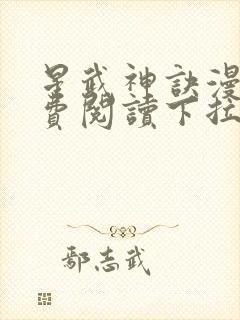 星武神訣漫
費閱讀下拉
鄢志武